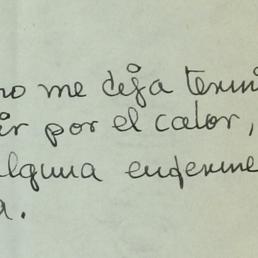 no me deja termi
ir por el calor,
alguna enferme
a.